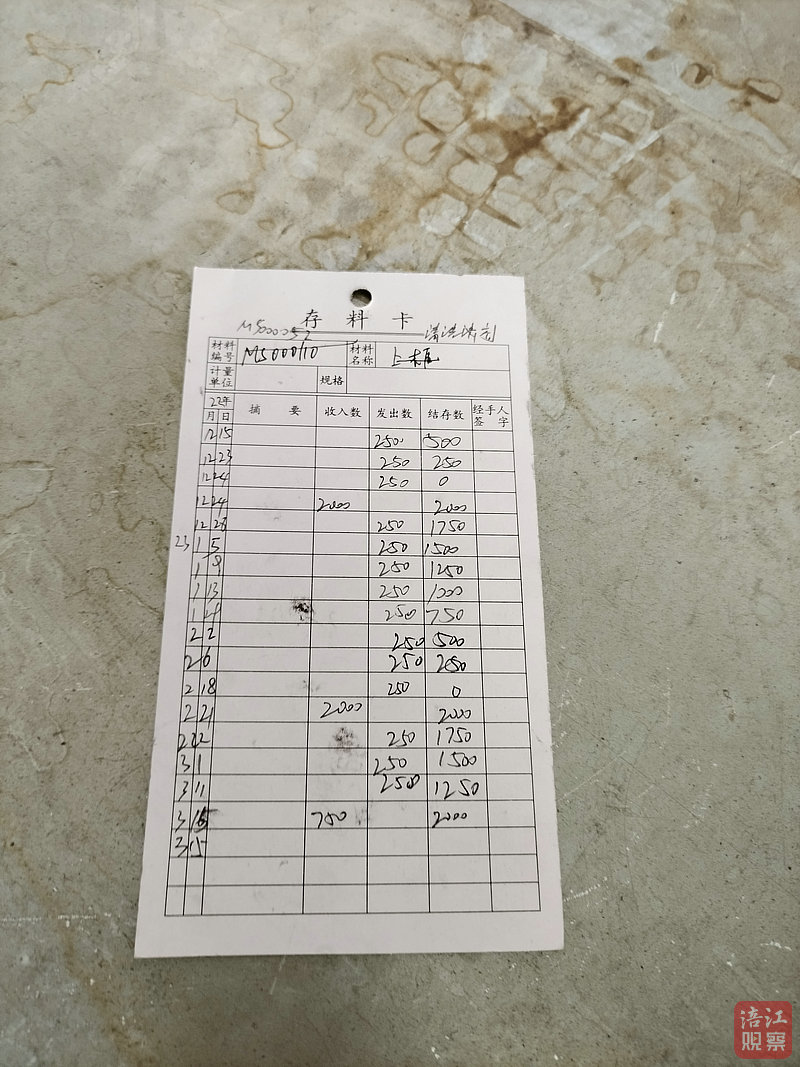 存料卡
M5000052
材料编号 M5000110 材料名称
计量单位 规格
22年
月 日 摘要 收入数 发出数 结存数 经手人签字
12 15 250 500
12 23 250 250
12 24 250 0
12 24 2000 2000
12 26 250 1750
23 1 5 250 1500
1 9 250 1250
1 13 250 1000
1 250 750
2 2 250 500
2 6 250 250
2 18 250 0
2 21 2000 2000
2 22 250 1750
3 1 250 1500
3 11 250 1250
3 15 750 2000
3 15
涪江观察